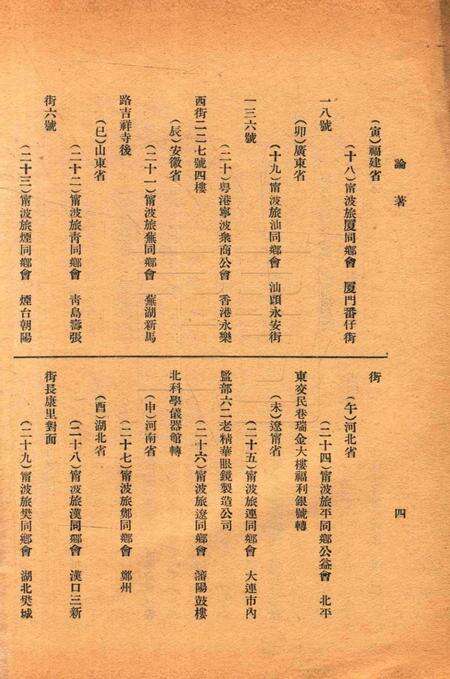 論著
四
(寅)福建省
(十八)甯波旅厦同鄉會　厦門番仔街
一八號
(卯)廣東省
(十九)甯波旅汕同鄉會　汕頭永安街
一三六號
(二十)粤港寧波衆商公會　香港永樂
西街二二七號四樓
(辰)安徽省
(二十一)甯波旅蕪同鄉會　蕪湖新馬
路吉祥寺後
(巳)山東省
(二十二)甯波旅青同鄉會　青島壽張
街六號
(二十三)甯波旅煙同鄉會　煙台朝陽
街
(午)河北省
(二十四)甯波旅平同鄉公益會　北平
東交民巷瑞金大樓福利銀號轉
(未)遼甯省
(二十五)甯波旅連同鄉會　大連市內
監部六二老精華眼鏡製造公司
(二十六)甯波旅遼同鄉會　瀋陽鼓樓
北科學儀器館轉
(申)河南省
(二十七)甯波旅鄭同鄉會　鄭州
(酉)湖北省
(二十八)甯波旅漢同鄉會　漢口三新
街長康里對面
(二十九)甯波旅樊同鄉會　湖北樊城